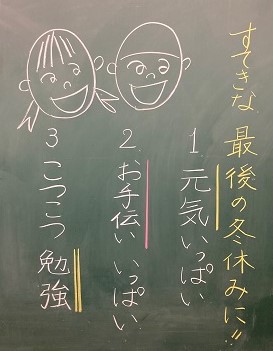 すてきな 最後の冬休みに!!
1 元気いっぱい
2 お手伝い いっぱい
3 こつこつ 勉強